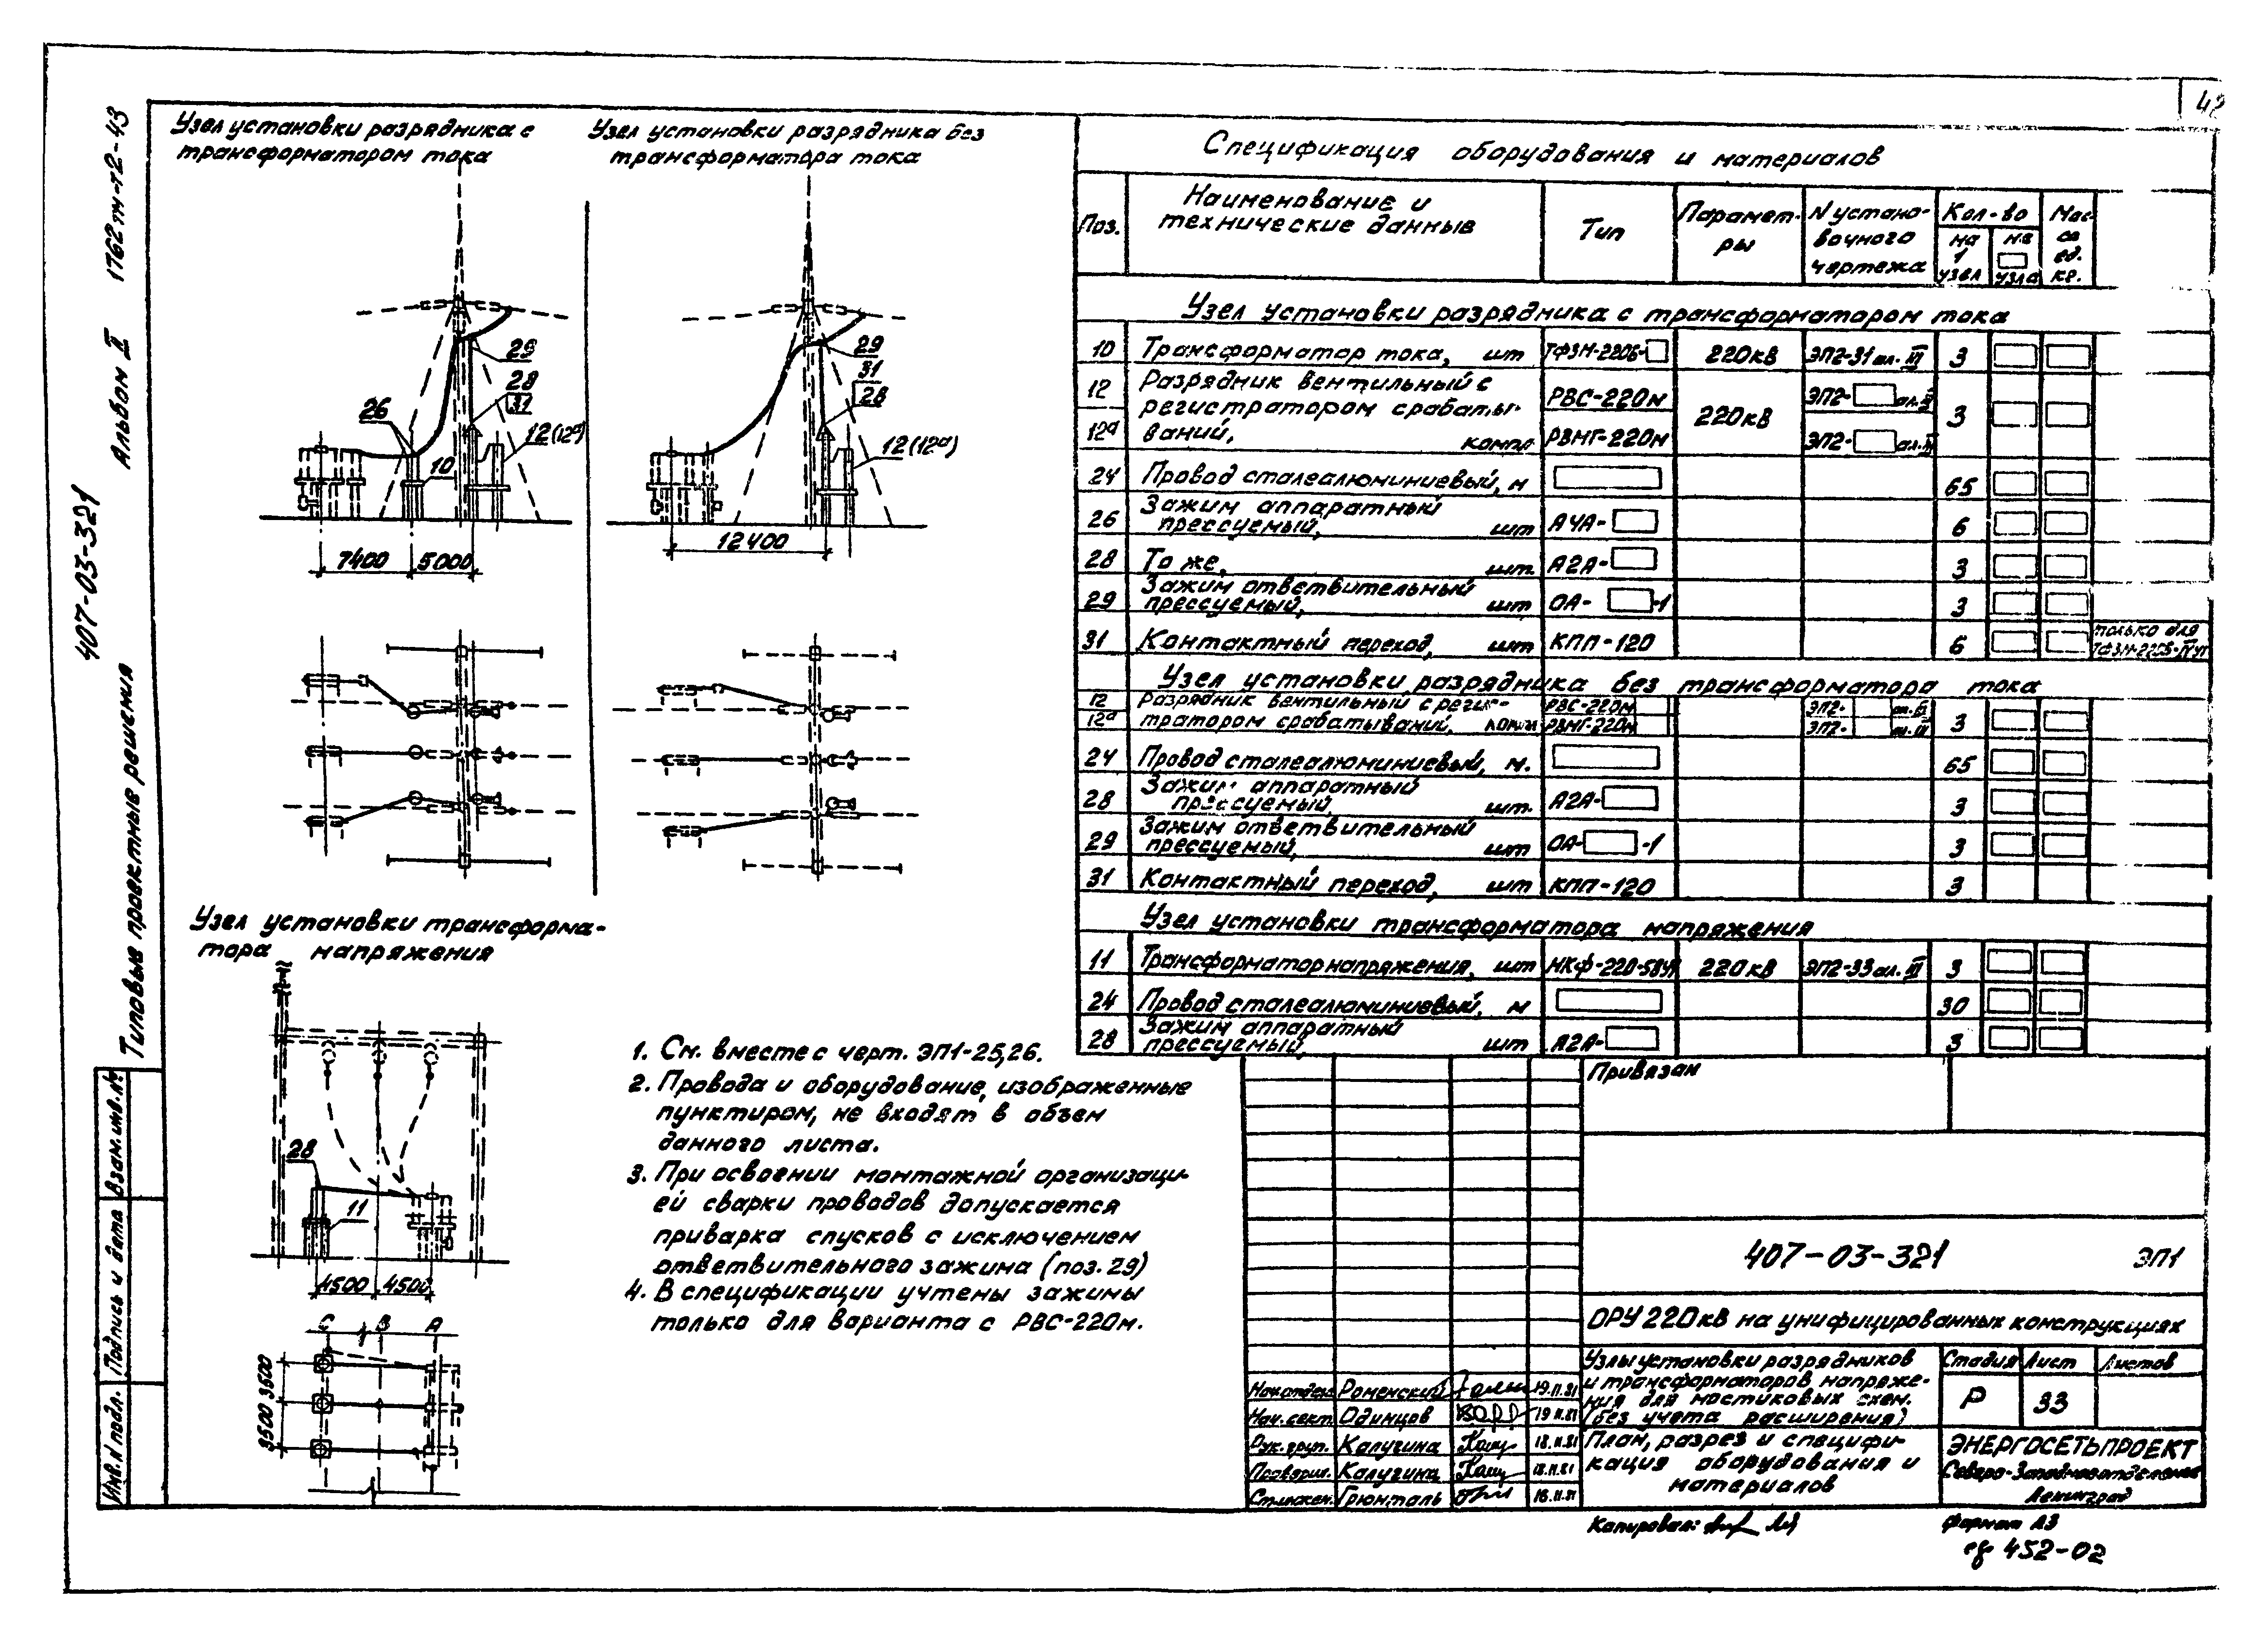 42
Узел установки разрядника с
трансформатором тока
Узел установки разрядника без
трансформатора тока
29
28
31
26
12(12а)
10
7400
5000
29
31
28
12(12а)
12400
Узел установки трансформа-
тора напряжения
28
11
4500
4500
С В А
3500 3500
1. См. вместе с черт. ЭП1-25,26.
2. Провода и оборудование, изображенные
пунктиром, не входят в объем
данного листа.
3. При освоении монтажной организаци-
ей сварки проводов допускается
приварка спусков с исключением
ответвительного зажима (поз. 29)
4. В спецификации учтены зажимы
только для варианта с РВС-220м.
Спецификация оборудования и материалов
Поз.
Наименование и
технические данные
Тип
Парамет-
ры
N устано-
вочного
чертежа
Кол-во
на
1
узел
на
узла
Мас-
са
ед.
кг.
Узел установки разрядника с трансформатором тока
10 Трансформатор тока, шт ТФЗМ-220Б- 220кв ЭП2-31 ал. III 3
12 Разрядник вентильный с РВС-220м ЭП2-
регистратором срабаты- 220кв 3
12а ваний, компл РВМГ-220м ЭП2-
24 Провод сталеалюминиевый, м 65
26 Зажим аппаратный
прессуемый, шт А4А- 6
28 То же, шт. А2А- 3
29 Зажим ответвительный
прессуемый, шт ОА- -1 3
31 Контактный переход, шт КПП-120 6 только для
Узел установки разрядника без трансформатора тока
12 Разрядник вентильный с регис- РВС-220м ЭП2-
12а тратором срабатываний, компл РВМГ-220м ЭП2- ал. III 3
24 Провод сталеалюминиевый, м. 65
28 Зажим аппаратный
прессуемый, шт. А2А- 3
29 Зажим ответвительный
прессуемый, шт ОА- -1 3
31 Контактный переход, шт КПП-120 3
Узел установки трансформатора напряжения
11 Трансформатор напряжения, шт НКФ-220-58У1 220кв ЭП2-33 ал. III 3
24 Провод сталеалюминиевый, м 30
28 Зажим аппаратный
прессуемый, шт А2А- 3
Привязан
407-03-321 ЭП1
ОРУ 220кВ на унифицированных конструкциях
Узлы установки разрядников
и трансформаторов напряже-
ния для мостиковых схем.
(без учета расширения)
Стадия Лист Листов
Р 33
План, разрез и специфи-
кация оборудования и
материалов
ЭНЕРГОСЕТЬПРОЕКТ
Северо-Западное отделение
Ленинград
Нач.отдел. Роменский 19.11.81
Нач. сект. Одинцов 19.11.81
Рук. груп. Калугина 18.11.81
Проверил. Калугина 18.11.81
Ст.инжен. Грюнталь 16.11.81
Копировал:
Формат А3
452-02
407-03-321
Типовые проектные решения Альбом II 1762тм-т2-43
Инв. N подл. Подпись и дата Взам. инв. N